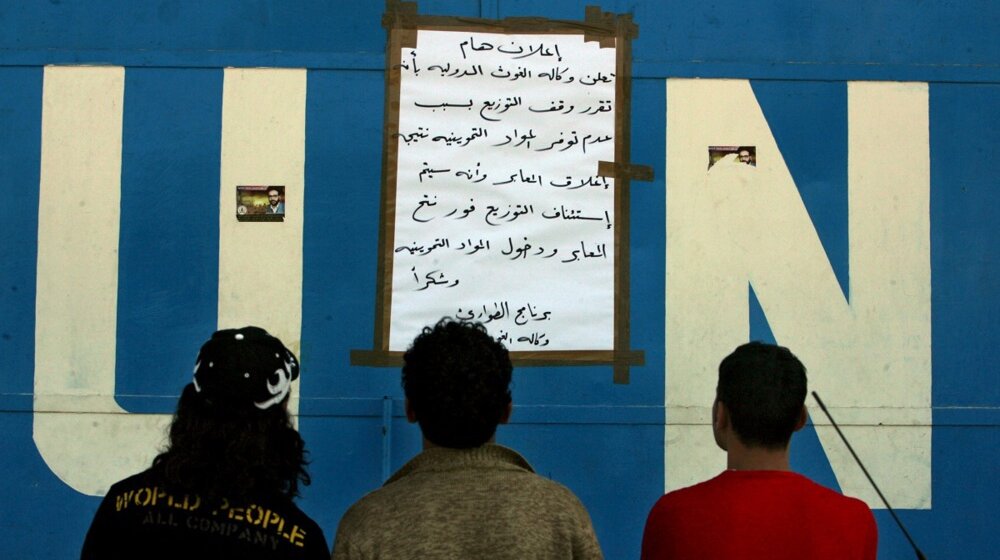 UN
إعلان هام
تعلن وكاله الغوث الدوليه بأنه
تقرر وقف التوزيع بسبب
عدم توفر المواد التموينيه نتيجه
إغلاق المعابر وأنه سيتم
إستئناف التوزيع فور فتح
المعابر ودخول المواد التموينيه
وشكراً
برنامج الطوارئ
وكاله
WORLD PEOPLE
ALL COMPANY